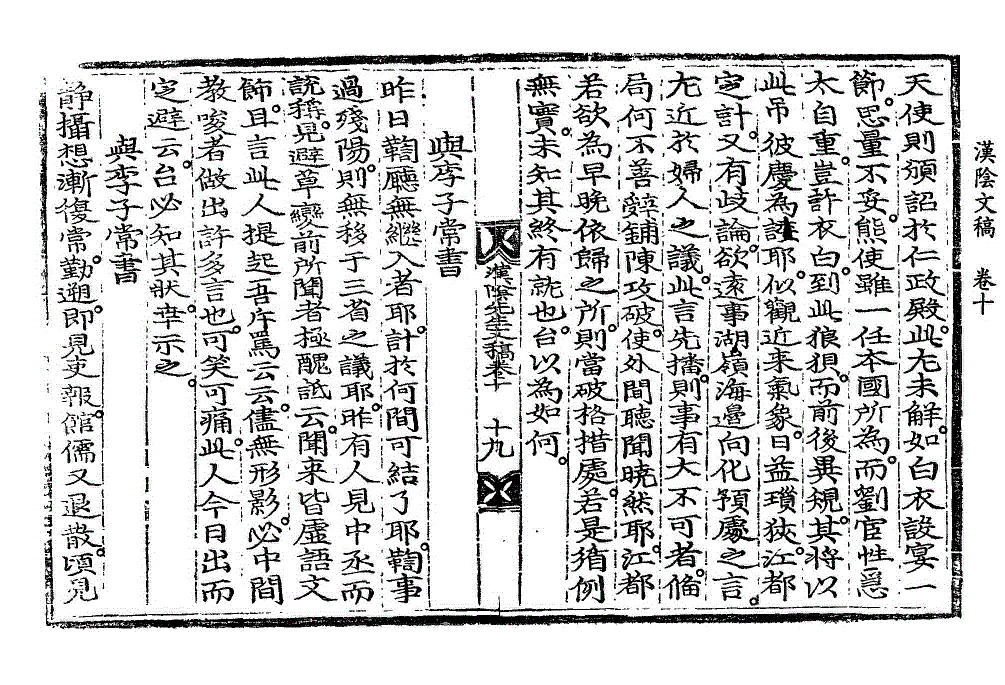 漢陰文稿　卷十
天使則頒詔於仁政殿此尤未解如白衣設宴一
節思量不妥熊使雖一任本國所為而劉官性惡
太自重豈許衣白到此狼狽而前後異規其將以
此吊彼慶為諉耶似觀近來氣象日益瑣狹江都
定計又有歧論欲遠事湖嶺海邊向化預處之言
尤近於婦人之議此言先播則事有大不可者備
局何不善辭鋪陳攻破使外間聽聞曉然耶江都
若欲為早晩依歸之所則當破格措處若是循例
無實未知其終有就也台以為如何
漢陰先生文稿卷十　十九
與李子常書
昨日鞫廳無繼入者耶計於何間可結了耶鞫事
過殘陽則無移于三省之議耶昨有人見中丞而
說稱兄避草變前所聞者極醜詆云聞來皆虛語文
飾且言此人提起吾斥罵云云儘無形影必中間
教唆者做出許多言也可笑可痛此人今日出而
定避云台必知其狀幸示之
與李子常書
靜攝想漸復常勤遡即見吏報館儒又退散頃見